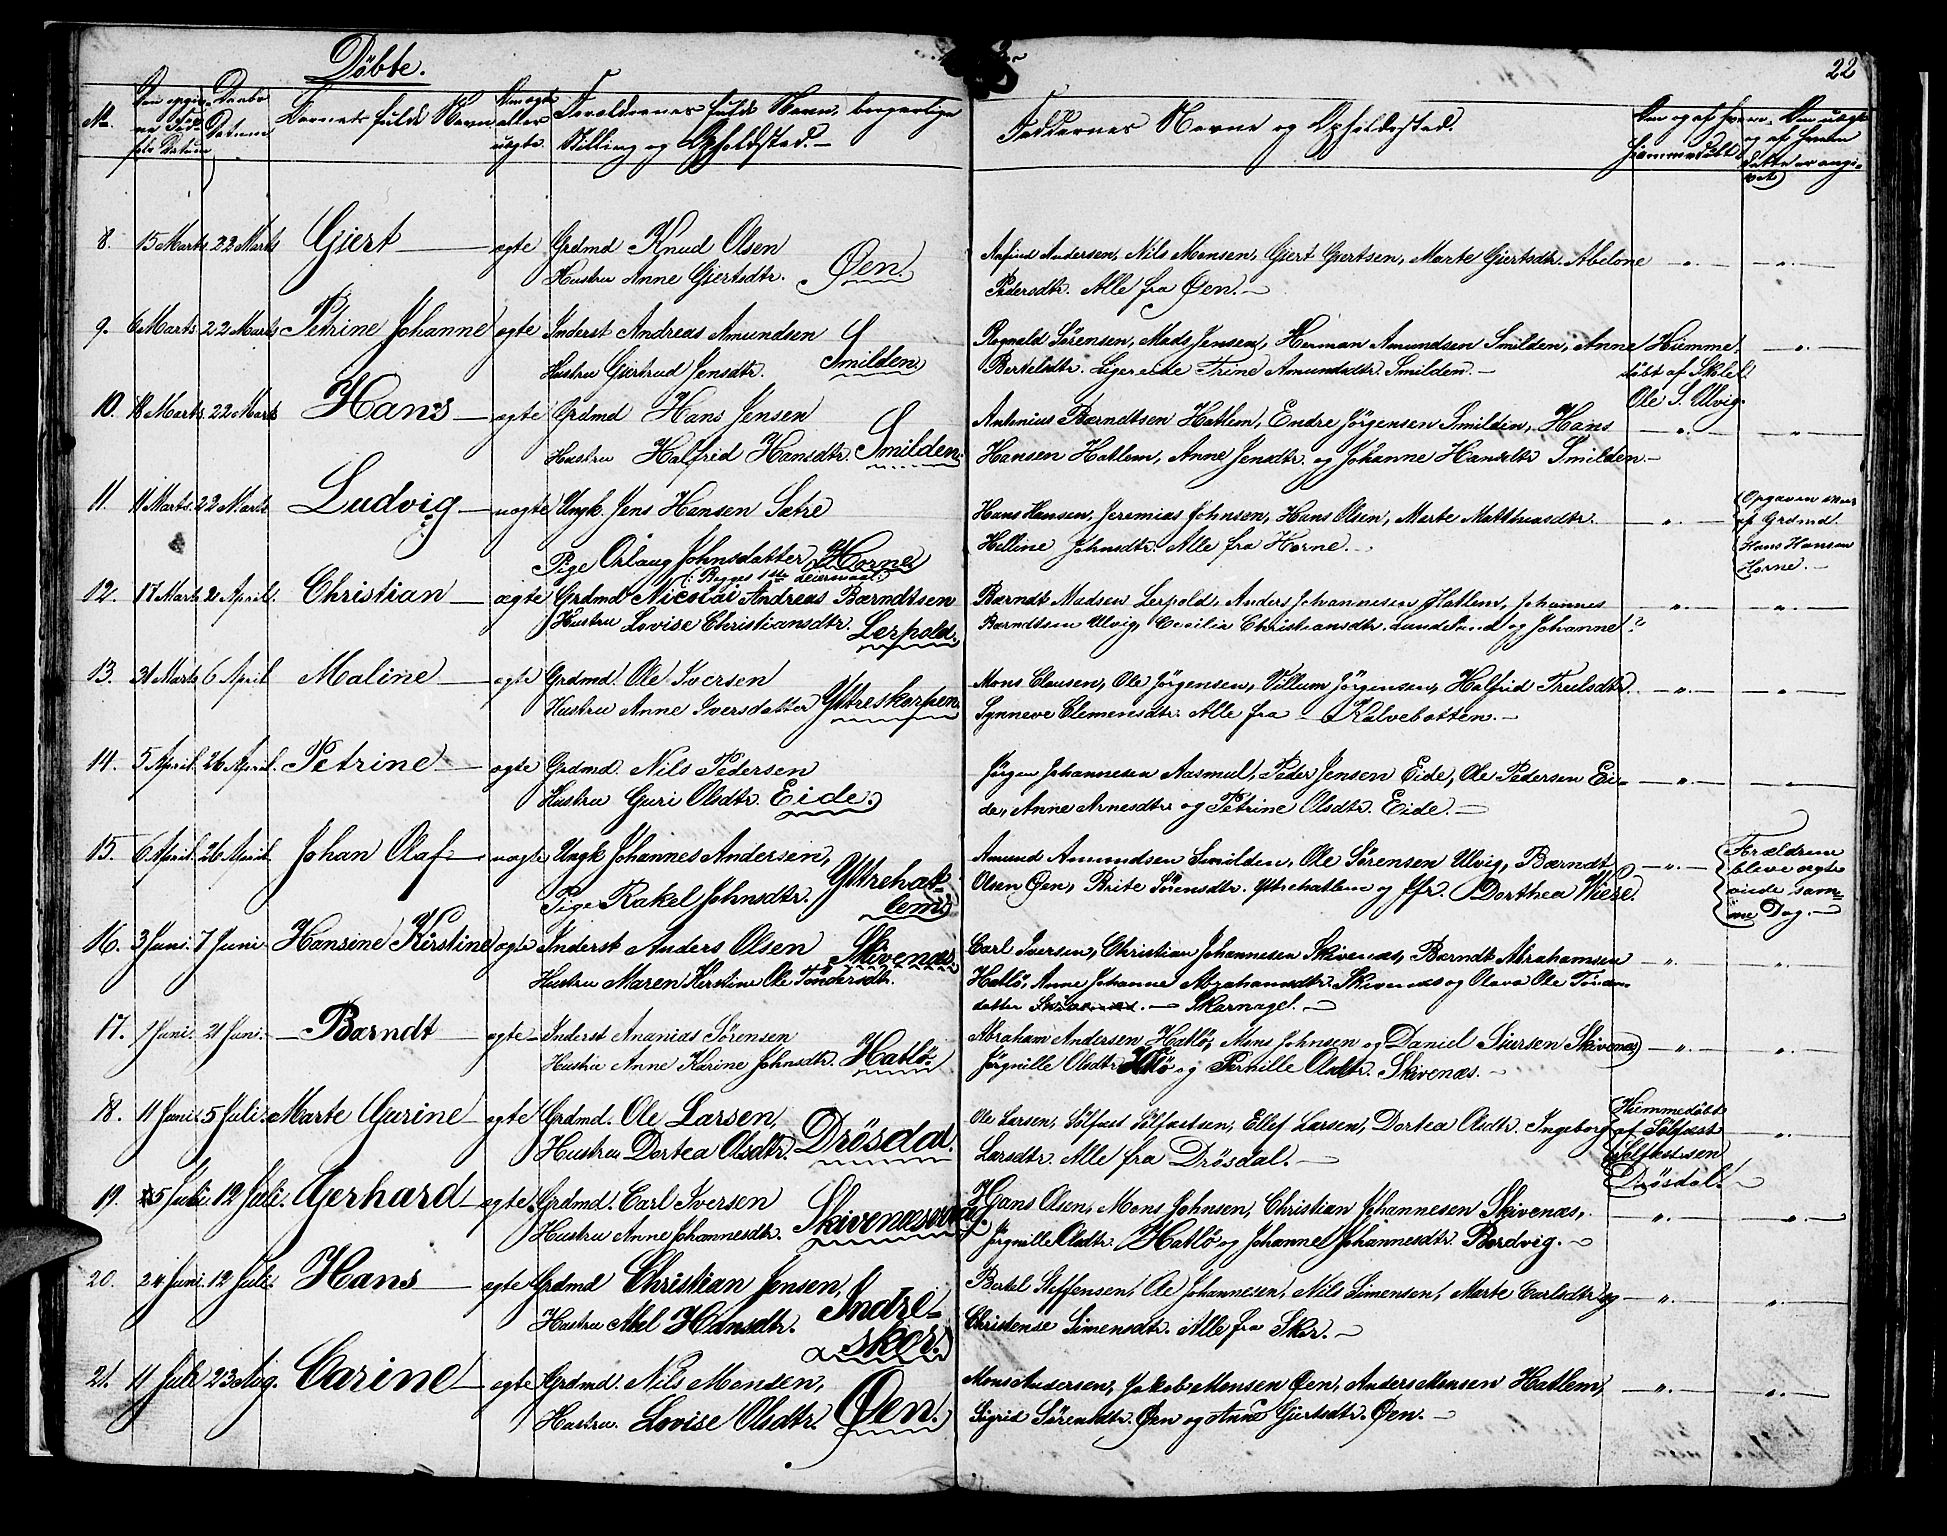 Döbte.
22
No. Den opgivne Fødsels Datum Daabs Datum Barnets fulde Navn Om ægte eller uægte. Forældrenes fulde Navn, borgerlige Stilling og Opholdssted. Faddernes Navne og Opholdssted. Om og af hvem hjemmedöbt
8. 15 Marts 22 Marts Gjert ægte Grdmd Knud Olsen
Hustru Anne Gjertsdtr. Øen.
Andersen, Nils Monsen, Gjert Gjertsen, Marte Gjertsdtr. Abelone
Pedersdtr. Alle fra Øen.
9. 6 Marts 22 Marts Petrine Johanne ægte Inderst Andreas Amundsen
Hustru Gjertrud Jensdtr. Smilden.
Rognald Sørensen, Mads Jensen, Herman Amundsen Smilden, Anne
Berteldtr. Trine Amundsdtr. Smilden.
Hjemmedöbt af Skolel. Ole S. Ulvig.
10. 18 Marts 22 Marts Hans ægte Grdmd Hans Jensen
Hustru Halfrid Hansdtr. Smilden.
Antonius Bærndtsen Hatlem, Endre Jörgensen Smilden, Hans
Hansen Hatlem, Anne Jensdtr. og Johanne Hansdtr Smilden.
11. 11 Marts 22 Marts Ludvig uægte Ungk. Jens Hansen Sætre
Pige Orlaug Johnsdatter Horne
(: Begges 1ste Leiermaal:)
Hans Hansen, Jeremias Johnsen, Hans Olsen, Marte Matthiasdtr.
Helline Johnsdtr. Alle fra Horne.
Opgaven
af Grdmd.
Hans Hansen
Horne.
12. 17 Marts 2 April. Christian ægte Grdmd Nicolai Andreas Bærndtsen
Hustru Lovise Christiansdtr. Lerpold.
Bærndt Madsen Lerpold, Anders Johannesen Hatlem, Johannes
Bærndtsen Ulvig, Cecilia Christiansdtr. og Johanne ?
13. 31 Marts 6 April Maline ægte Grdmd. Ole Iversen
Hustru Anne Iversdatter Yttreskorpen
Mons Clausen, Ole Jörgensen, Villum Jörgensen, Halfrid Trulsdtr.
Synneve Clemensdtr. Alle fra Kalvebotten.
14. 5 April. 26 April. Petrine ægte Grdmd. Nils Pedersen
Hustru Guri Olsdtr. Eide.
Jörgen Johannesen Aasmul, Peder Jensen Eide, Ole Pedersen Ei-
de, Anne Arnesdtr og Petrine Olsdtr. Eide.
15. 6 April. 26 April. Johan Olaf uægte Ungk Johannes Andersen,
Pige Rakel Johnsdtr. Yttrehat-
lem.
Amund Amundsen Smilden, Ole Sørensen Ulvig, Bærndt
Olsen Øen, Brite Sørensdtr. Yttrehatlem og Jfr. Dorthea Wiese.
Forældrene
bleve ægte
viede sam-
me Dag.
16. 3 Juni. 7 Juni. Hansine Kirstine ægte Inderst Anders Olsen Skivenæs.
Hustru Maren Kerstine Ole Tøndersdtr.
Carl Iversen, Christian Johannesen Skivenæs, Bærndt Abrahamsen
Hatlö, Anne Johanne Abrahamsdtr. Skivenæs og Olava Ole Tønder-
datter Skarnagel.
17. 1 Juni. 21 Juni. Bærndt ægte Inderst Ananias Sørensen
Hustru Anne Karine Johnsdtr. Hatlö.
Abraham Andersen Hatlö, Mons Johnsen og Daniel Siversen Skivenæs
Jörgnille Olsdtr Hatlö og Pernille Olsdtr. Skivenæs.
18. 11 Juni. 5 Juli. Marte Gurine ægte Grdmd. Ole Larsen,
Hustru Dortea Olsdtr. Drösdal.
Ole Larsen, Sölfæst Sölfæstsen, Ellef Larsen, Dortea Olsdtr. Ingeborg
Larsdtr. Alle fra Drösdal.
Hjemmedöbt
af Sölfæst
Sölfæstsen
Drösdal.
19. 5 Juli. 12 Juli. Gerhard ægte Grdmd. Carl Iversen
Hustru Anne Johannesdtr. Skivenæs
Hans Olsen, Mons Johnsen, Christian Johannesen Skivenæs,
Jörgnille Olsdtr. Hatlö og Johanne Johannesdtr. Bordvig.
20. 24 Juni. 12 Juli. Hans ægte Grdmd Christian Jensen,
Hustru Abel Hansdtr. Indre-
skor.
Bertel Steffensen, Ole Johannesen, Nils Simensen, Marte Carlsdtr og
Christense Simensdtr. Alle fra Skor.
21. 11 Juli 23 Aug. Carine ægte Grdmd. Nils Monsen,
Hustru. Lovise Olsdtr. Øen.
Mons Andersen, Jakob Monsen Øen, Anders Monsen Hatlem,
Sigrid Sørensdtr. Øen og Anne Gjertsdtr. Øen.